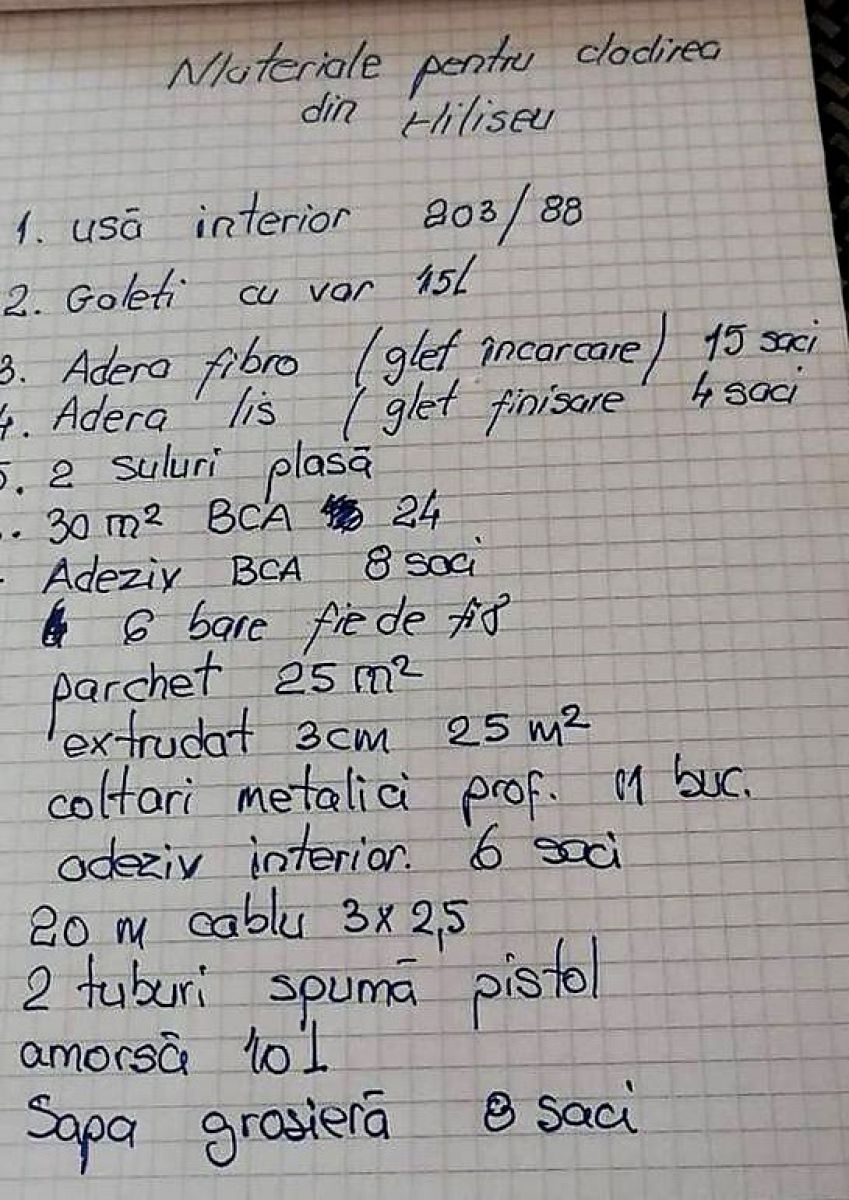 Materiale pentru cladirea
din Hiliseu
1. usă interior 203/88
2. Galeti cu var 15l
3. Adera fibro (glet încarcare) 15 saci
4. Adera lis (glet finisare 4 saci
5. 2 suluri plasă
. 30 m² BCA 24
Adeziv BCA 8 saci
6 bare fie de
parchet 25 m²
extrudat 3cm 25 m²
coltari metalici prof. buc.
adeziv interior. 6 saci
20 m cablu 3x2,5
2 tuburi spumă pistol
amorsă 10 l
Sapa grosieră 8 saci